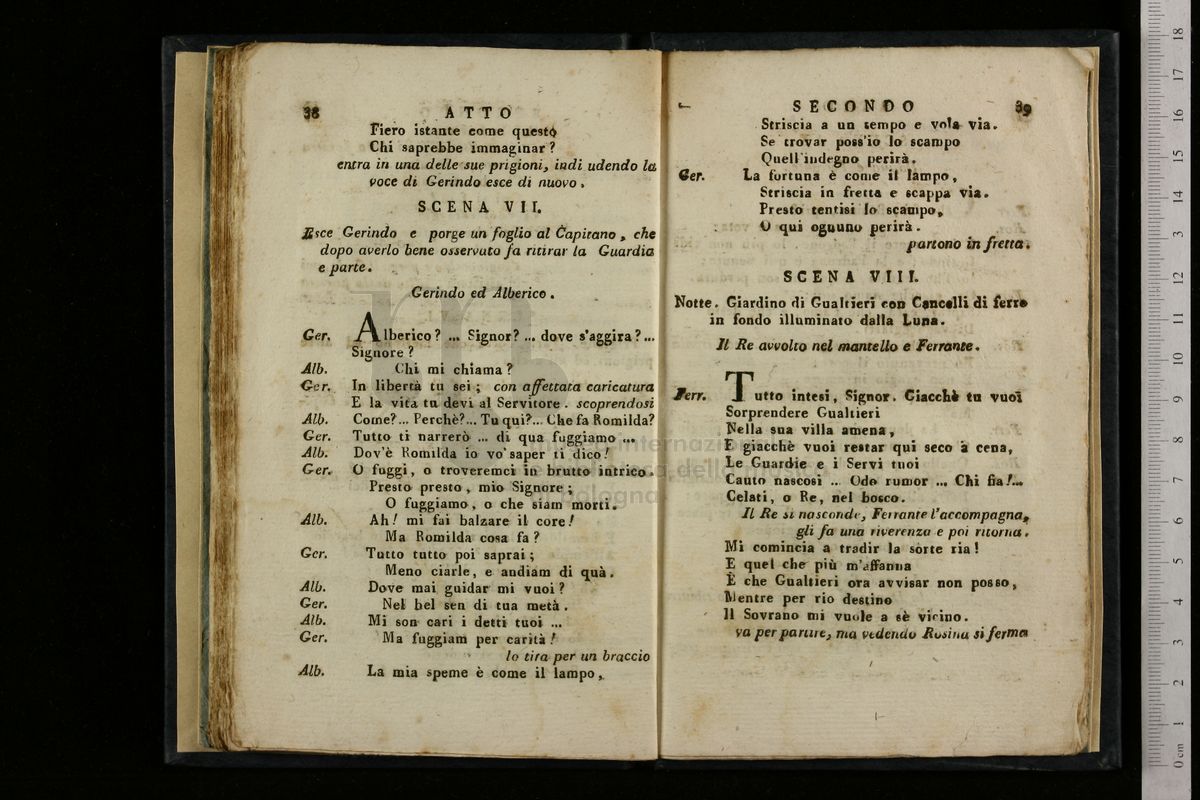 38
ATTO
Fiero istante come questo
Chi saprebbe immaginar?
entra in una delle sue prigioni, indi udendo la
voce di Gerindo esce di nuovo.
SCENA VII.
Esce Gerindo e porge un foglio al Capitano, che
dopo averlo bene osservato fa ritirar la Guardia
e parte.
Gerindo ed Alberico.
Ger. Alberico? ... Signor? ... dove s'aggira? ...
Signore?
Alb. Chi mi chiama?
Ger. In libertà tu sei; con affettata caricatura
E la vita tu devi al Servitore. scoprendosi
Alb. Come?... Perchè?... Tu qui?... Che fa Romilda?
Ger. Tutto ti narrerò ... di qua fuggiamo ...
Alb. Dov'è Romilda io vo' saper ti dico!
Ger. O fuggi, o troveremci in brutto intrico.
Presto presto, mio Signore;
O fuggiamo, o che siam morti.
Alb. Ah! mi fai balzare il core!
Ma Romilda cosa fa?
Ger. Tutto tutto poi saprai;
Meno ciarle, e andiam di quà.
Alb. Dove mai guidar mi vuoi?
Ger. Nel bel sen di tua metà.
Alb. Mi son cari i detti tuoi ...
Ger. Ma fuggiam per carità!
lo tira per un braccio
Alb. La mia speme è come il lampo,
SECONDO
39
Striscia a un tempo e vola via.
Se trovar poss'io lo scampo
Quell'indegno perirà.
Ger. La fortuna è come il lampo,
Striscia in fretta e scappa via.
Presto tentisi lo scampo,
O qui ognuno perirà.
partono in fretta.
SCENA VIII.
Notte. Giardino di Gualtieri con Cancelli di ferro
in fondo illuminato dalla Luna.
Il Re avvolto nel mantello e Ferrante.
Ferr. Tutto intesi, Signor. Giacchè tu vuoi
Sorprendere Gualtieri
Nella sua villa amena,
E giacchè vuoi restar qui seco a cena,
Le Guardie e i Servi tuoi
Cauto nascosi ... Odo rumor ... Chi fia!...
Celati, o Re, nel bosco.
Il Re si nasconde, Ferrante l'accompagna,
gli fa una riverenza e poi ritorna.
Mi comincia a tradir la sorte ria!
E quel che più m'affanna
È che Gualtieri ora avvisar non posso,
Mentre per rio destino
Il Sovrano mi vuole a sè vicino.
va per partire, ma vedendo Rosina si ferma